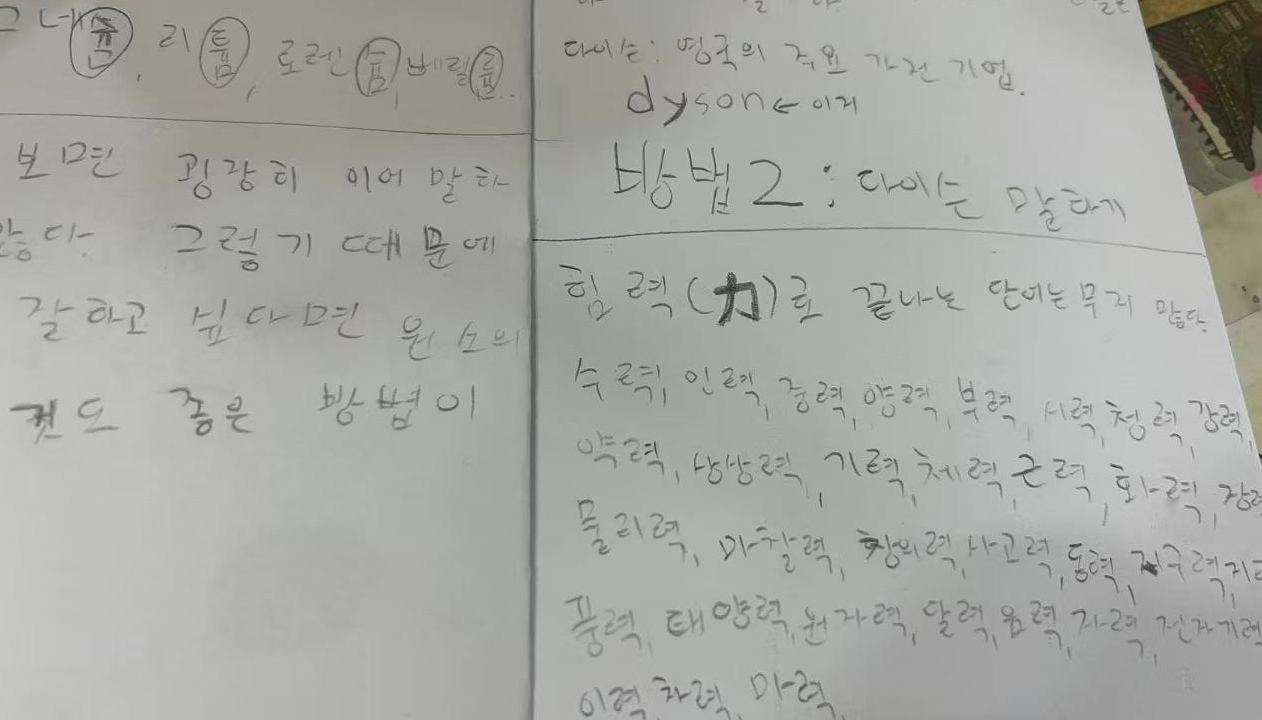 리튬, 로렌슘, 베릴륨..
보면 굉장히 이어 말하
많다. 그렇기 때문에
잘하고 싶다면 원소의
것도 좋은 방법이
다이슨: 영국의 주요 가전 기업.
dyson← 이거
방법2: 다이슨 말하기
힘 력(力)로 끝나는 단어는 무지 많다.
수력, 인력, 중력, 양력, 부력, 시력, 청력, 강력,
약력, 상상력, 기력, 체력, 근력, 화력,
물리력, 마찰력, 창의력, 사고력, 동력, 지구력,
풍력, 태양력, 원자력, 달력, 음력, 자력, 전자기력
이력, 차력, 마력